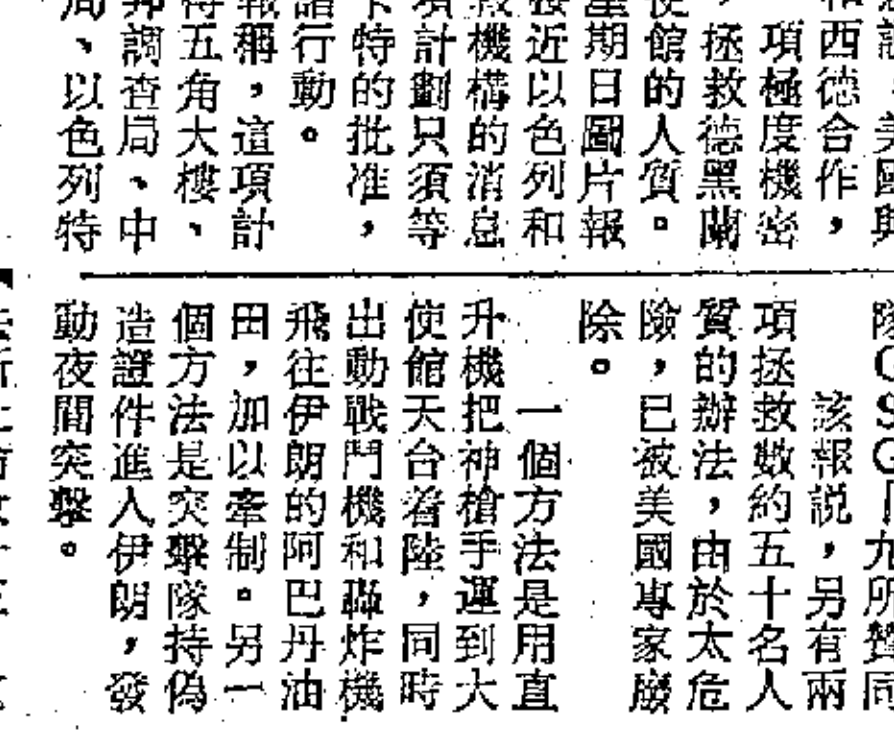 美國與
西德合作，
項極度機密
，拯救德黑蘭
使館的人質。
星期日圖片報
接近以色列和
救機構的消息
項計劃只須等
卡特的批准，
諸行動。
報稱，這項計
得五角大樓、
邦調查局、中
局、以色列特
隊GSG「九所贊同
該報説，另有兩
項拯救數約五十名人
質的辦法，由於太危
險，已被美國專家廢
除。
一個方法是用直
升機把神槍手運到大
使館天台着陸，同時
出動戰鬥機和轟炸機
飛往伊朗的阿巴丹油
田，加以牽制。另一
個方法是突擊隊持偽
造證件進入伊朗，發
動夜間突擊。